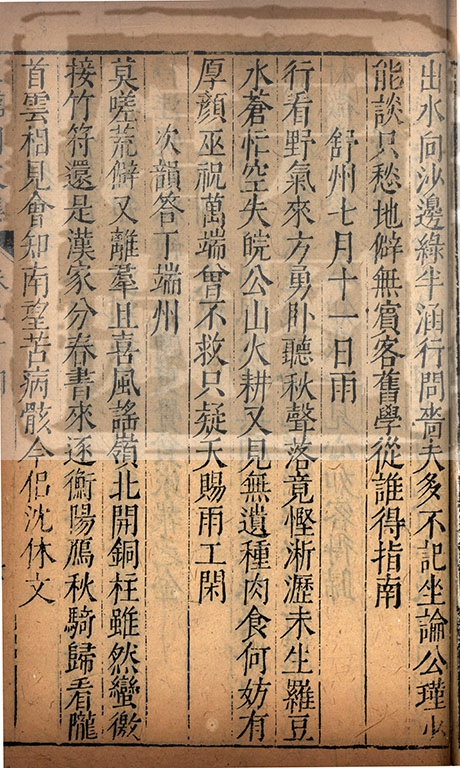 出水向沙邊綠半涵行問嗇夫多不記坐論公瑾少
能談只愁地僻無賓客舊學從誰得指南
舒州七月十一日雨
行看野氣來方勇臥聽秋聲落竟慳淅瀝未生羅豆
水蒼忙空失皖公山火耕又見無遺種肉食何妨有
厚顏巫祝萬端曾不救只疑天賜雨工閑
次韻答丁端州
莫嗟荒僻又離羣且喜風謠嶺北開銅柱雖然蠻徼
接竹符還是漢家分春書來逐衡陽鴈秋騎歸看隴
首雲相見會知南望苦病骸今侣沈休文